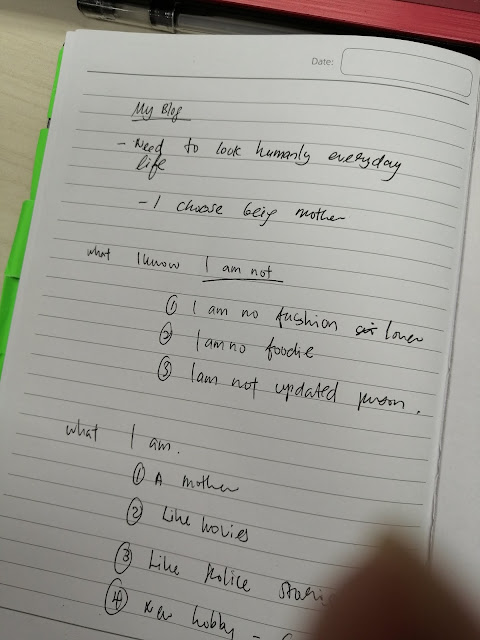 Date:
My Blog
- Need to look humanly everyday
life
- I choose being mother
what I know I am not
① I am no fashion lover
② I am no foodie
③ I am not updated person.
what I am.
① A mother
② Like movies
③ Like police
④ New hobby -